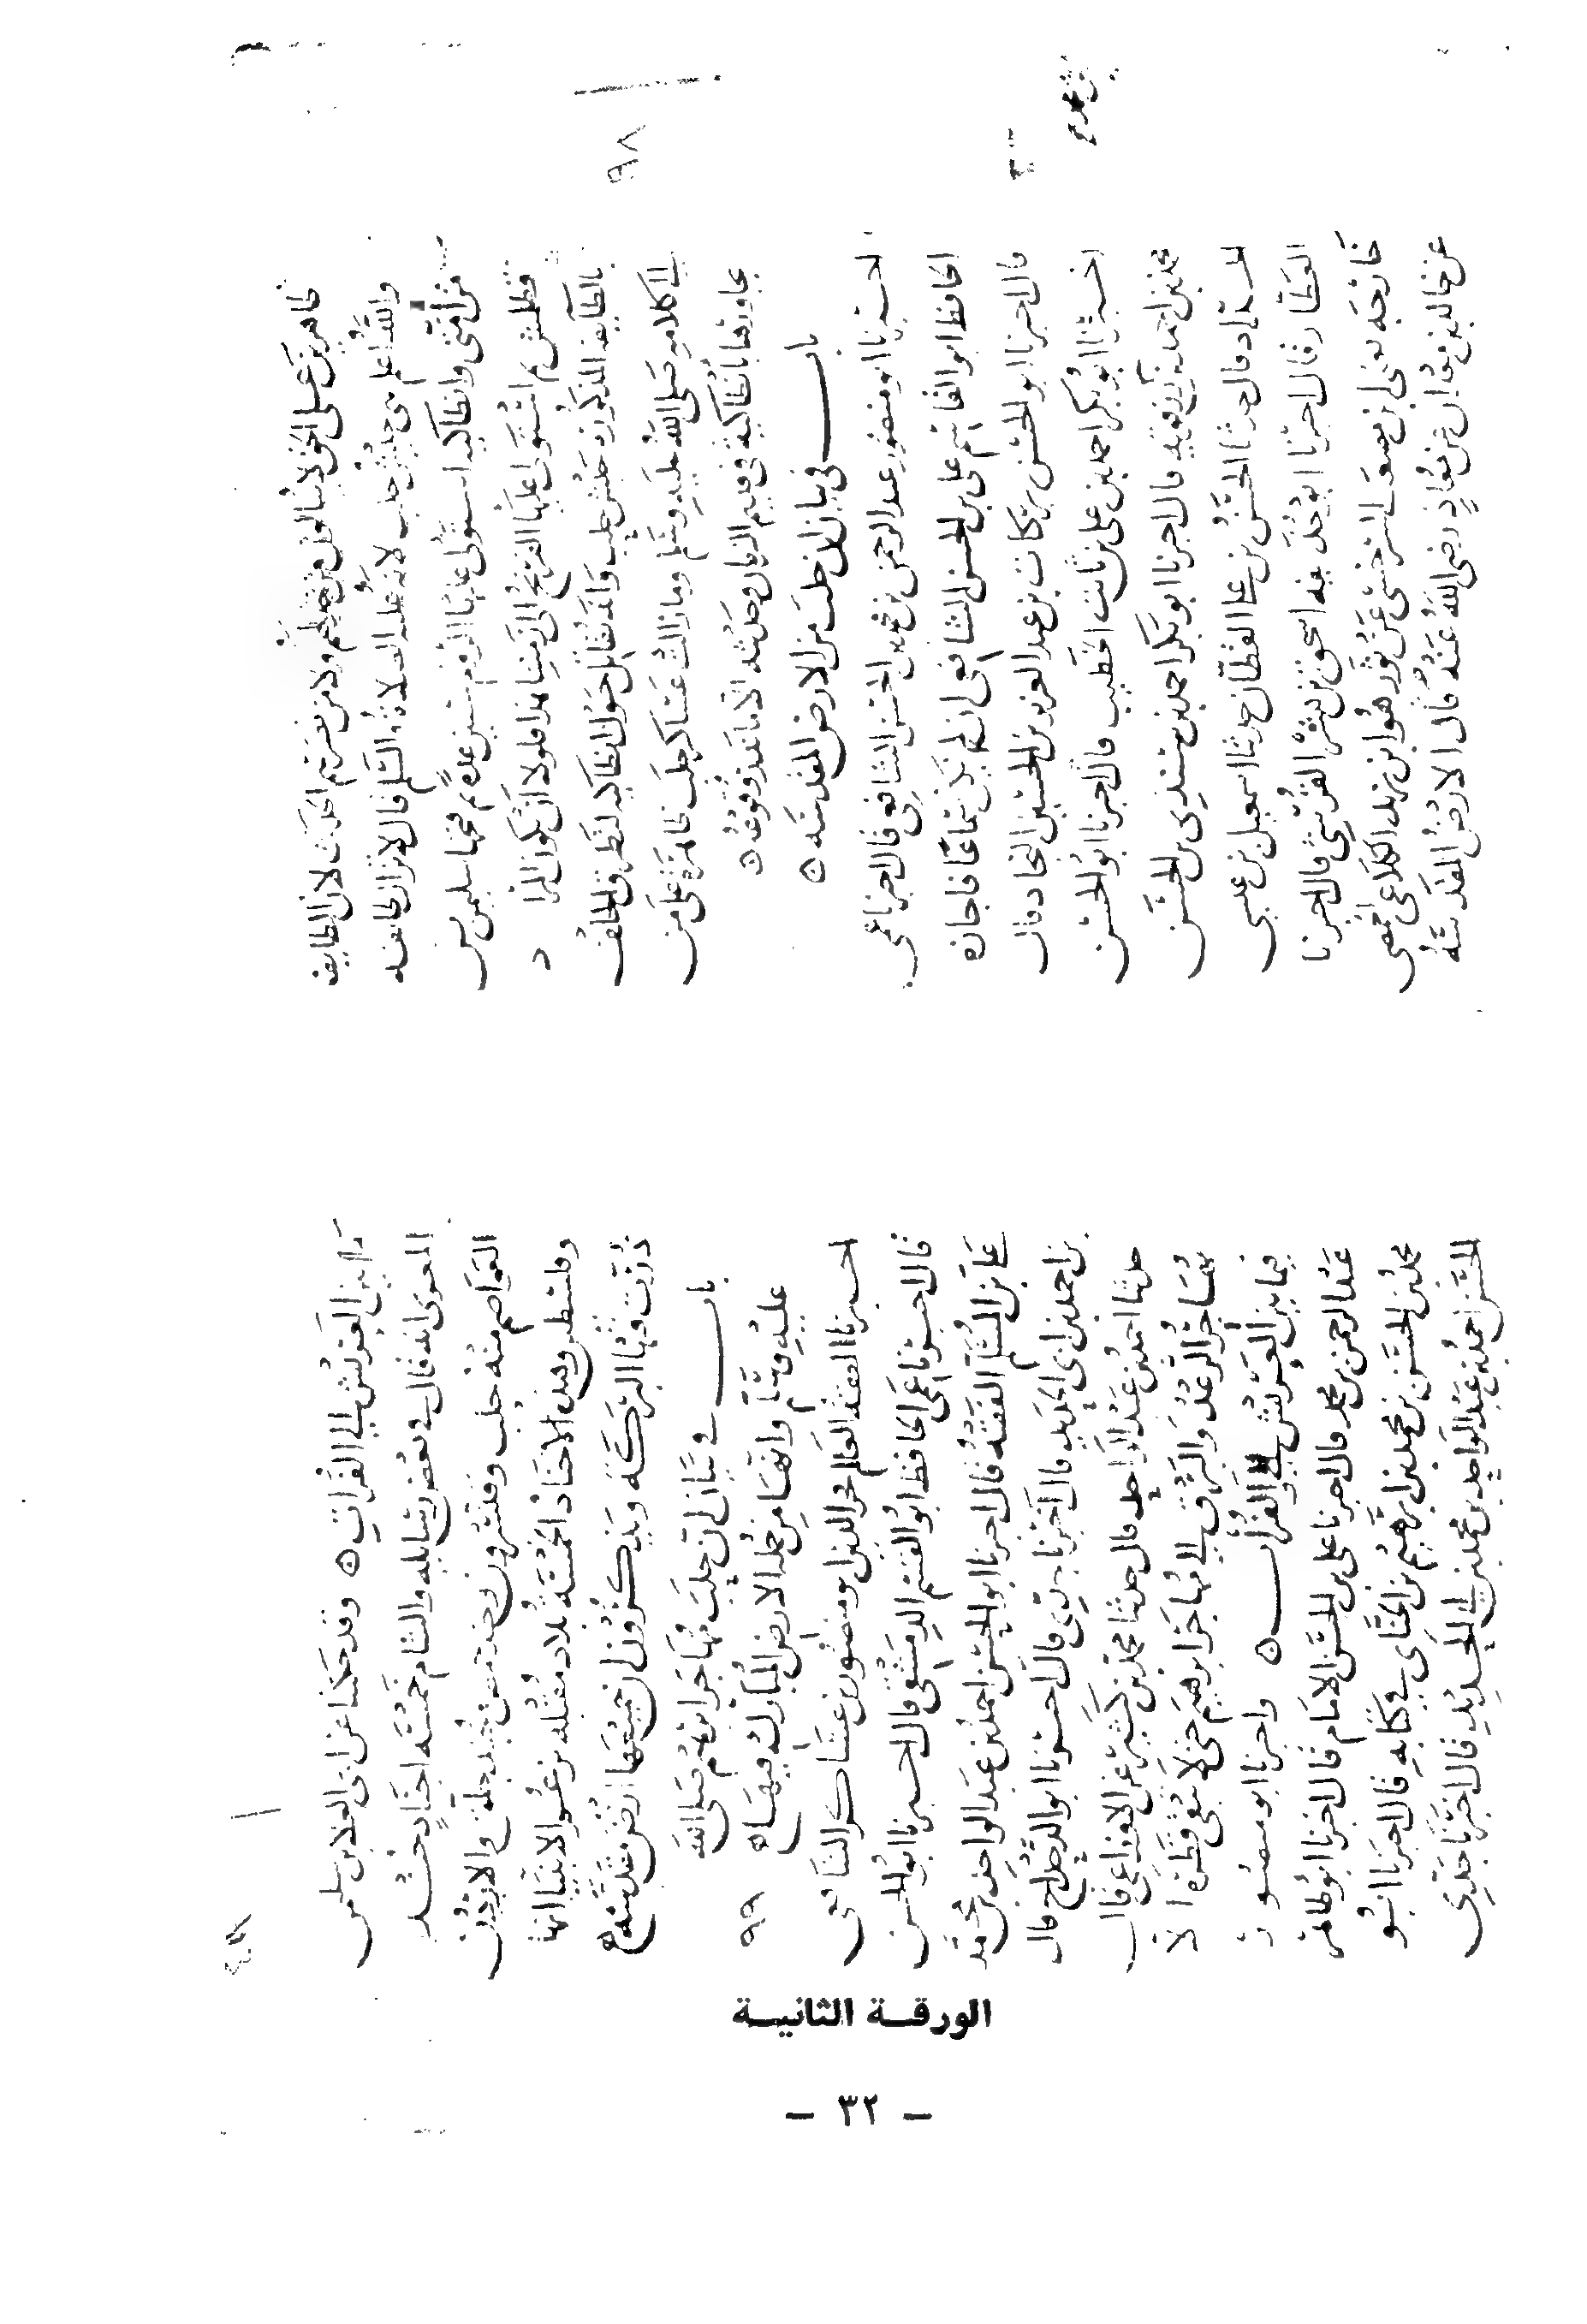 ٩٨
ظاهرين على الحق لا يبالون من خذلهم ولا من نصرهم الحديث لان الطايفه
والله اعلم هي جيش حلب لانه عليه الصلاة والسلم قال لا تزال طائفه
من امتي وانطاكيه استولى عليها الروم سنين عدة ثم فتحها سليمن بن
قطلمش ثم استولى عليها الفرنج الى زمننا هذا فلولا ان يكون المراد
بالطايفه المذكورة جيش حلب وانه يقاتل حول انطاكيه لتطرق الخلف
الى كلامه صلى الله عليه وسلم وما زالت عساكر حلب ظاهرة على من
يجاورها بانطاكية في قديم الزمان وحديثه بعد وقوعه ه
باب في بيان ان حلب من الارض المقدسه ه
اخبرنا ابو منصور عبد الرحمن بن محمد بن الحسن الشافعي قال اخبرنا عمي
الحافظ ابو القاسم علي بن الحسن الشافعي ان لم يكن سماعا فاجازه
قال اخبرنا ابو الحسن بركات بن عبد العزيز بن الحسين النجاد قال
اخبرنا ابو بكر احمد بن علي بن ثابت الخطيب قال اخبرنا ابو الحسن
محمد بن احمد بن رزقويه قال اخبرنا ابو بكر احمد بن سندي بن الحسن
الحداد قال حدثنا الحسن بن علي القطان حدثنا اسمعيل بن عيسى
العطار قال اخبرنا ابو حذيفه اسحق بن بشر القرشي قال اخبرنا
خارجه يعني بن مصعب السرخسي عن ثور هو ابن يزيد الكلاعي الحمصي
عن خالد بن معدان عن معاذ رضي الله عنه قال الارض المقدسه
٩٩
ما بين العريش الى الفرات ه وقد حكينا عن ابي العلا بن سليمن
المعري انه قال في بعض رسايله والشام خمسه اجناد جند
العواصم منه حلب وقنسرون وجند حمص وجند جلق والاردن
وفلسطين وهذه الاجناد الخمسة بلاد مقدسه زعموا الانبيا انها
قدست فيها البركة ويذكرون ان جميعها ارض مقدسه ه
باب في بيان ان حلب مهاجر ابرهيم صلى الله
عليه وسلم وانها من جمله الارض المبارك فيها ه
اخبرنا الفقيه العالم فخر الدين ابو منصور بن عساكر الشافعي
قال اخبرنا عمي الحافظ ابو القسم الدمشقي قال اخبرنا ابو الحسن
علي بن المسلم الفقيه قال اخبرنا ابو الحسن احمد بن عبد الواحد بن محمد
بن احمد بن ابي الحديد قال اخبرنا جدي قال اخبرنا ابو الدحداح قال
حدثنا احمد بن عبد الواحد قال حدثنا محمد بن كثير عن الاوزاعي قال
يهاجر الرعد والبرق الى مهاجر ابرهيم حتى لا تبقى قطرة الا
فيما بين العريش الى والفرات ه واخبرنا ابو منصور
عبد الرحمن بن محمد قال اخبرنا علي بن الحسن الامام قال اخبرنا ابو طاهر
محمد بن الحسن بن محمد بن ابرهيم بن الحنائي في كتابه قال اخبرنا ابو
الحسن احمد بن عبد الواحد بن محمد بن ابي الحديد قال اخبرنا جدي
الورقة الثانية
- ٣٢ -